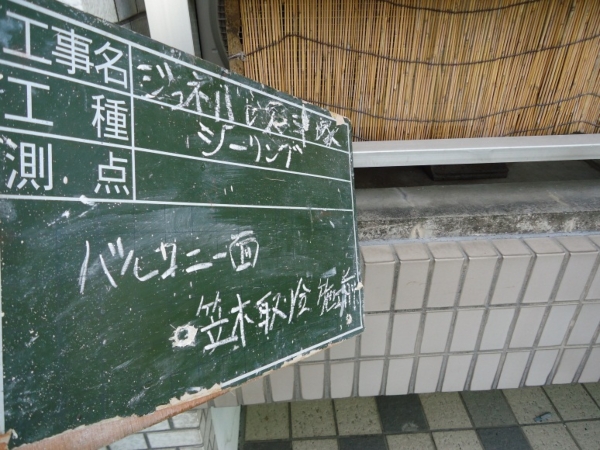 工事名 ジュネル
工種 シーリング
測点
バルコニー面
笠木取合 施工前